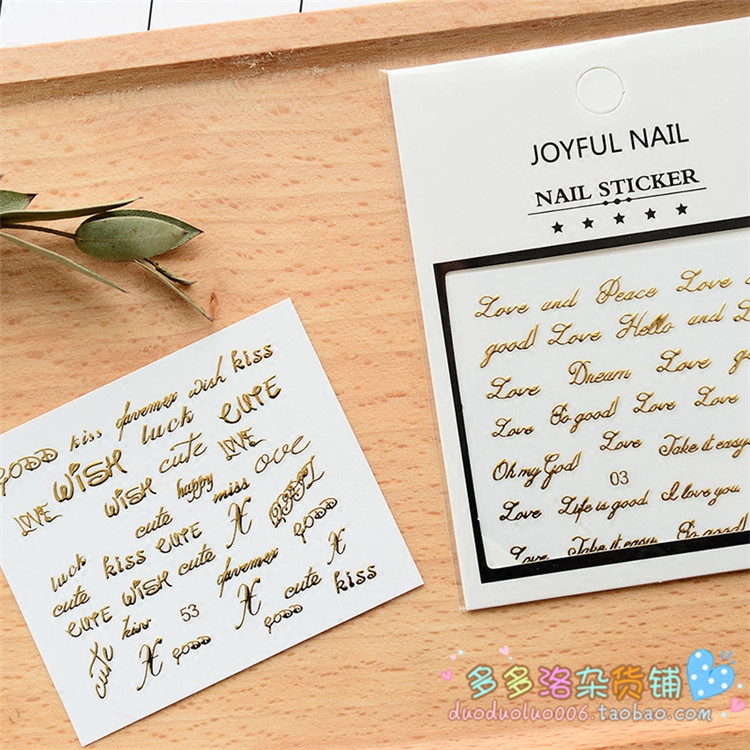 JOYFUL NAIL
NAIL STICKER
Love and Peace Love
good! Love Hello and
Love Dream Love
Love So good! Love Love
Oh my God! Love Take it easy
03
Love Life is good I love you
Love Take it easy So good!
GOOD kiss forever wish kiss
WISH luck CUTE
LOVE WISH cute LOVE
happy miss ove
cute
luck kiss CUTE
cute GOOD
CUTE WISH cute forever
kiss 53 cute kiss
cute GOOD GOOD
多多洛杂货铺
duoduoluo006.taobao.com